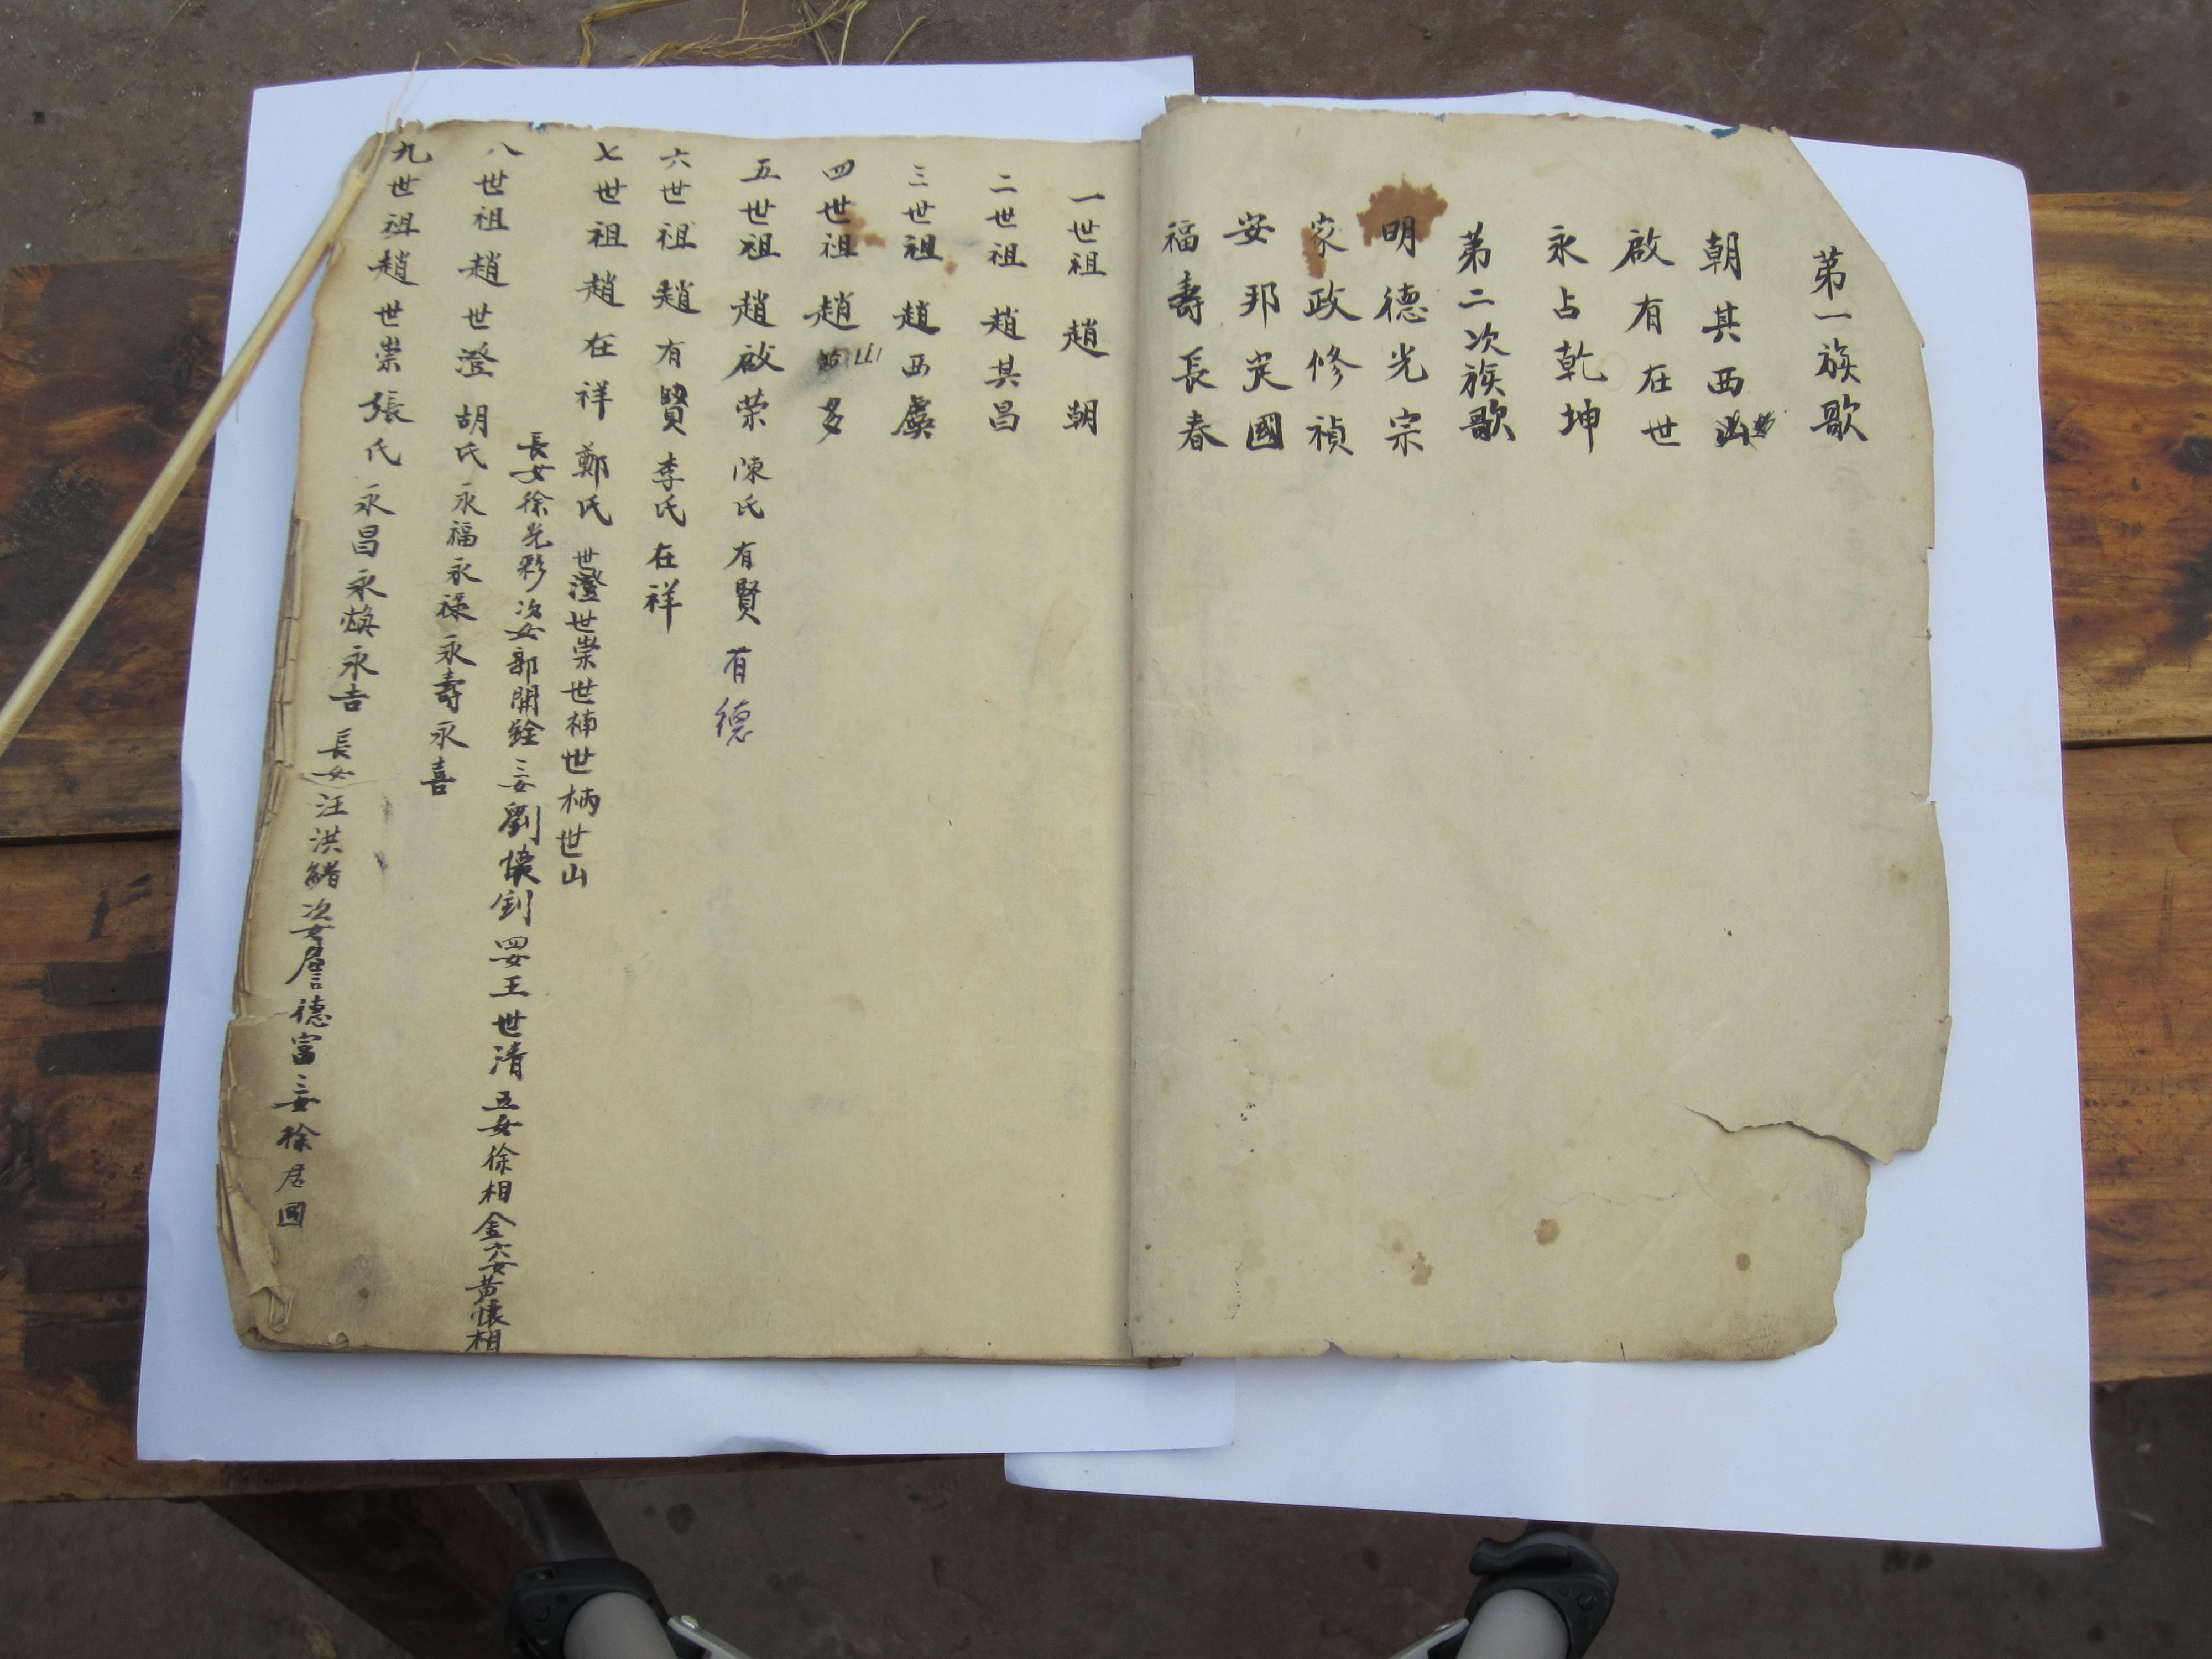 第一族歌
朝其西
啟有在世
永占乾坤
第二次族歌
明德光宗
家政修禎
安邦定國
福壽長春
一世祖 趙 朝
二世祖 趙其昌
三世祖 趙西虞
四世祖 趙山多
五世祖 趙啟荣 陳氏 有賢 有德
六世祖 趙有賢 李氏 在祥
七世祖 趙在祥 鄭氏 世澄世崇世楠世柄世山
長女徐光彩次女郭開銓三女劉懷釗四女王世清五女徐相金六女黄懷相
八世祖 趙世澄 胡氏 永福永禄永壽永喜
九世祖趙世崇張氏永昌永煥永吉長女汪洪緒次女詹德富三女徐居國